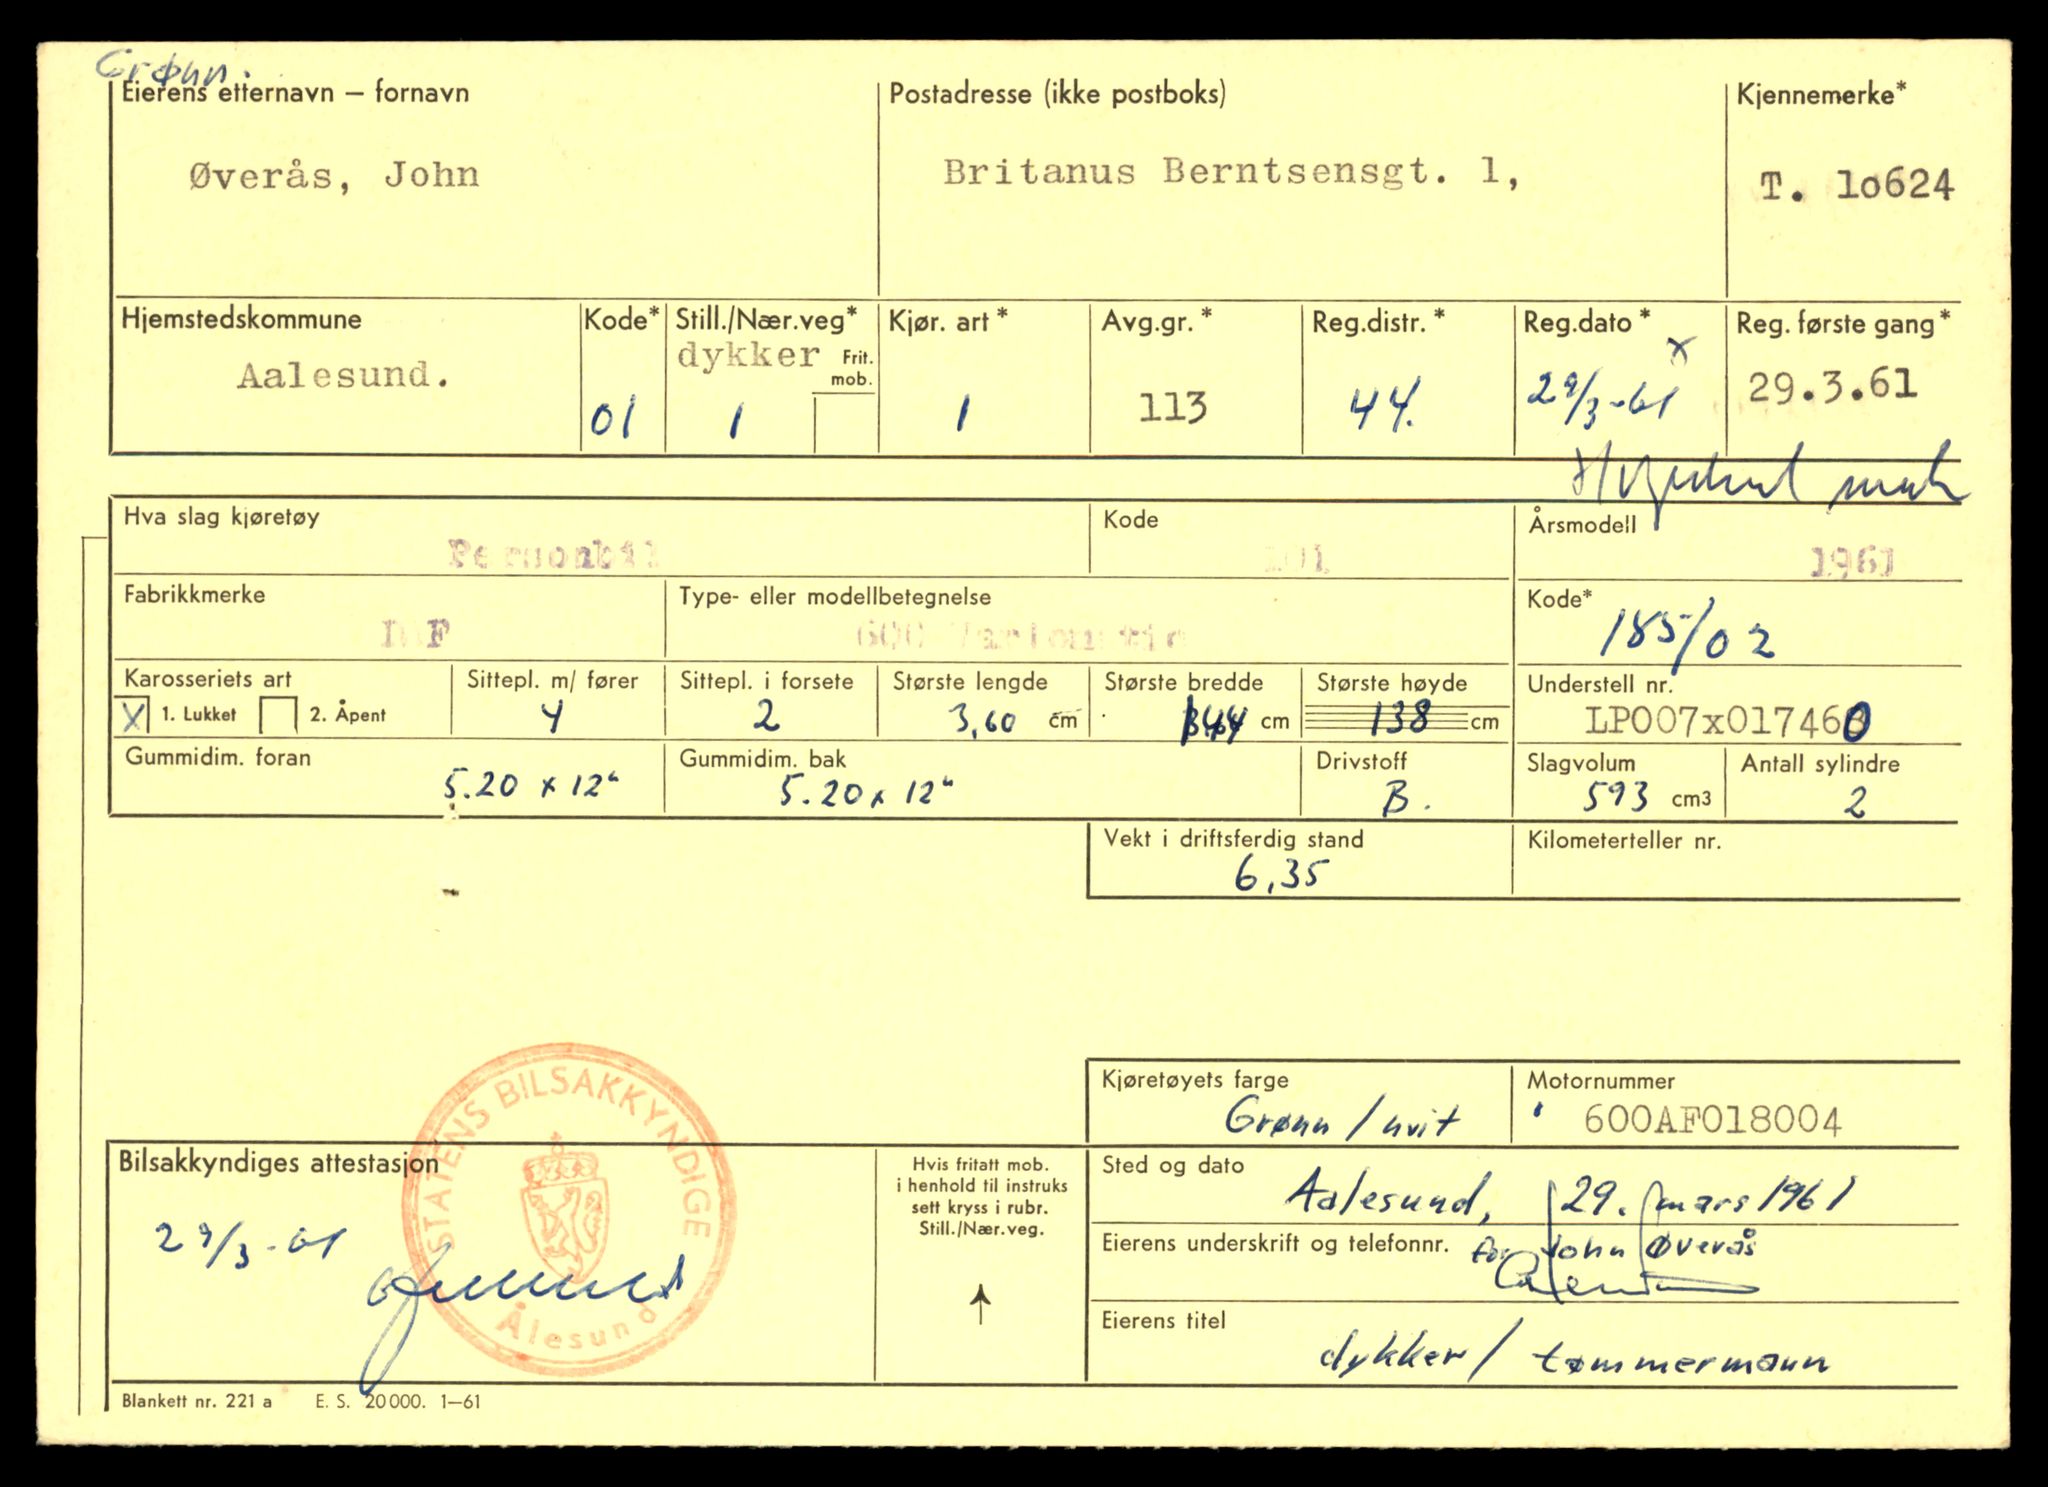 Grønn.
Eierens etternavn – fornavn Postadresse (ikke postboks) Kjennemerke*
Øverås, John Britanus Berntsensgt. 1, T. 1o624
Hjemstedskommune Kode* Still./Nær.veg* Kjør. art* Avg.gr.* Reg.distr.* Reg.dato* Reg. første gang*
dykker Frit. x
mob.
Aalesund. 01 1 1 113 44. 29/3-61 29.3.61
Hva slag kjøretøy Kode Årsmodell
Personbil 101 1961
Fabrikkmerke Type- eller modellbetegnelse Kode*
DAF 600 185/02
Karosseriets art Sittepl. m/ fører Sittepl. i forsete Største lengde Største bredde Største høyde Understell nr.
X 1. Lukket 2. Åpent 4 2 3,60 cm 144 cm 138 cm LP007x017460
Gummidim. foran Gummidim. bak Drivstoff Slagvolum Antall sylindre
5.20 x 12" 5.20 x 12" B. 593 cm3 2
Vekt i driftsferdig stand Kilometerteller nr.
6,35
Kjøretøyets farge Motornummer
Grønn / hvit 600AF018004
STATENS BILSAKKYNDIGE
Ålesund
Bilsakkyndiges attestasjon
29/3-61
Hvis fritatt mob.
i henhold til instruks
sett kryss i rubr.
Still./Nær.veg.
Sted og dato
Aalesund, 29. mars 1961
Eierens underskrift og telefonnr. for John Øverås
Eierens titel
dykker / tømmermann
Blankett nr. 221 a E. S. 20 000. 1–61